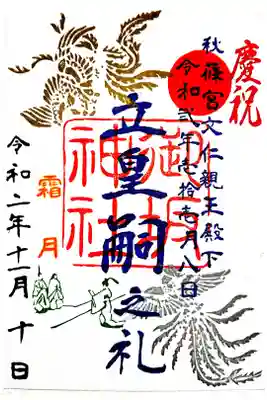 慶祝
秋篠宮文仁親王殿下
令和弐年壱拾壱月八日
立皇嗣之礼
霜月
令和二年十一月十日